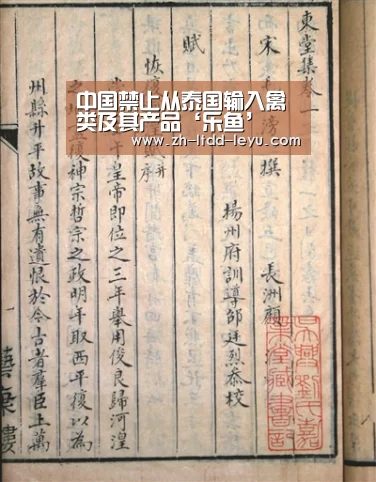 中国禁止从泰国输入禽
类及其产品‘乐鱼’
www.zh-ltdd-leyu.com
東堂集卷一
宋 滂撰 長洲顧
揚州府訓導邵廷烈恭校
賦
恢 并序
皇帝即位之三年舉用俊良歸河湟
復神宗哲宗之政明年取西平復以為
州縣升平故事無有遺恨於今古者羣臣上萬
一
樓
吳興劉氏嘉
業堂藏書記